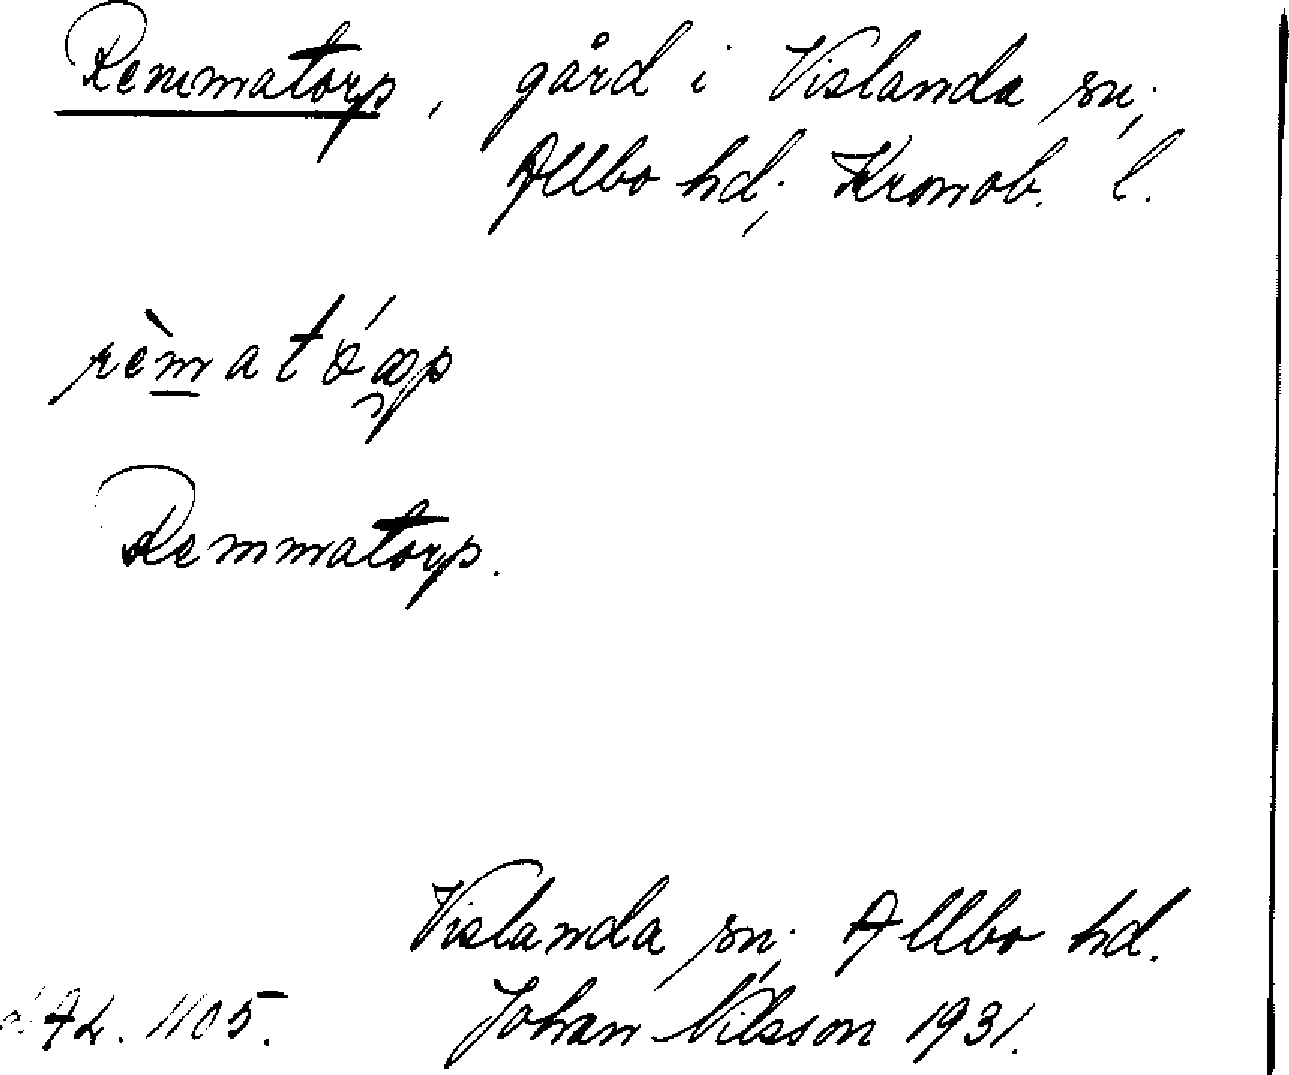 Remmatorp, gård i Vislanda sn.,
Allbo hd., Kronob. l.
Remmatorp.
Vislanda sn., Allbo hd.
AL. 1105. Johan Nilsson 1931.